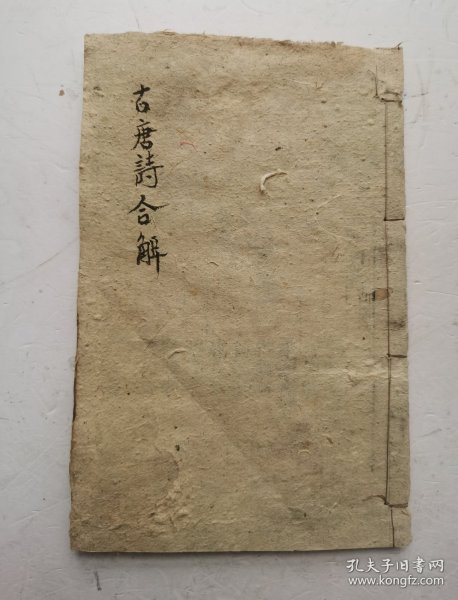 古唐詩合解
孔夫子旧书网
www.kongfz.com